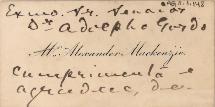 Exmo. Sr. Senador
Dr. Adolpho Gordo
Mr. Alexander Mackenzie
cumprimenta e
agradece, de